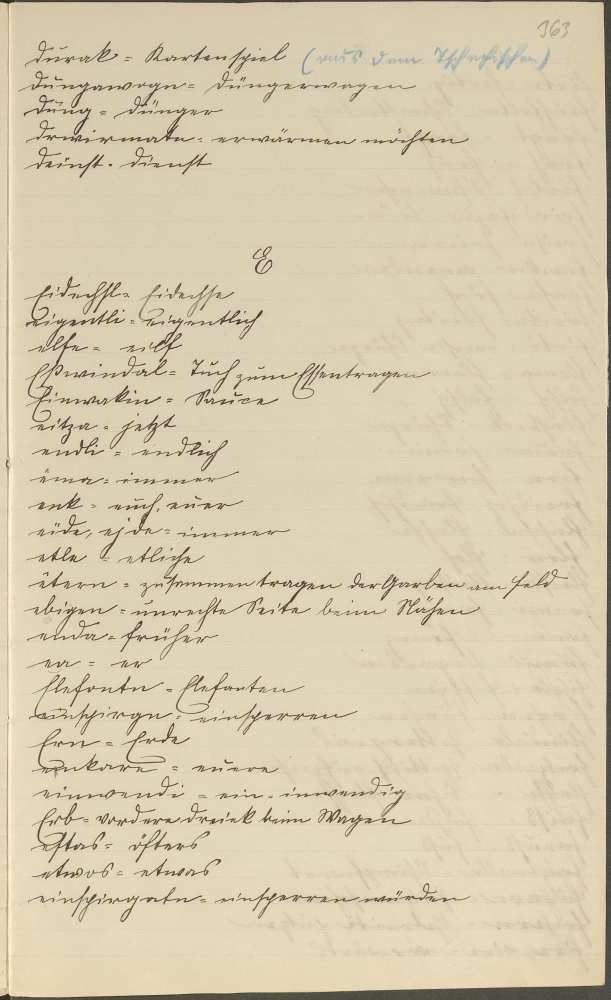 363
durak = Kartenspiel (aus dem Tschechischen)
dungawogn = Düngerwagen
dung = Dünger
drwirmatn = erwärmen möchten
deinst = Dienst
E
Eidechsl = Eidechse
eigentli = eigentlich
elfe = eilf
Eßwindal = Tuch zum Essentragen
Einmakin = Sauce
eitza = jetzt
endli = endlich
ema = immer
enk = euch, euer
eide, ejde = immer
etle = etliche
etern = zusammentragen der Garben am Feld
ebigen = unrechte Seite beim Nähen
enda = früher
ea = er
Elefontn = Elefanten
einspirgn = einsperren
Ern = Erde
enkare = euere
einwendi = ein-inwendig
Erb = vordere Dreiek beim Wagen
eftas = öfters
etwos = etwas
einspirgatn = einsperren würden